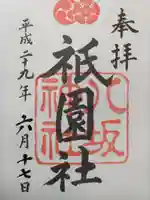 奉拝
八坂神社
祇園社
平成二十九年
六月十七日